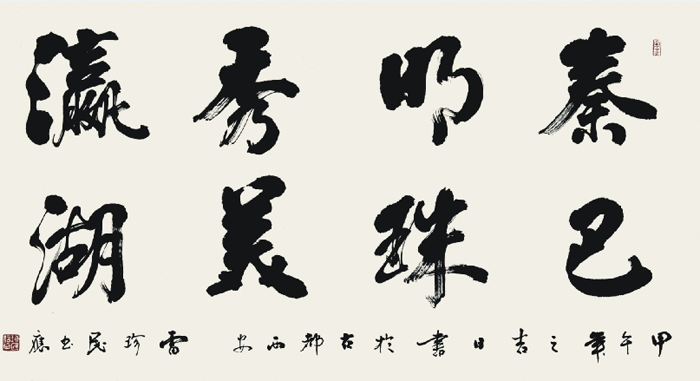 秦巴
明珠
秀美
瀛湖
甲午年之吉日書於古都西安 雷珍民